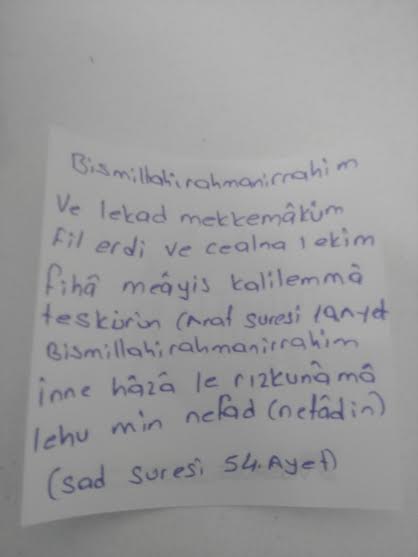 Bismillahirahmanirrahim
Ve lekad mekkemâküm
fil erdi ve cealna lekim
fihâ meâyis kalilemmâ
teskürün (Araf suresi 10.Ayet
Bismillahirahmanirrahim
inne hâzâ le rızkunâ mâ
lehu min nefad (nefâdin)
(sad suresi 54.Ayet)